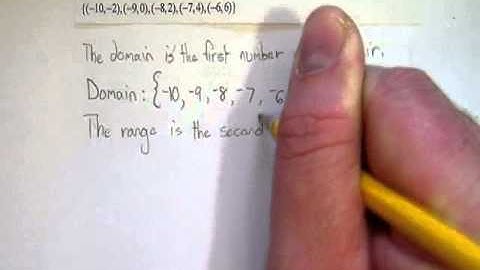 {(−10,−2),(−9,0),(−8,2),(−7,4),(−6,6)}
The domain is the first number
Domain: {-10, -9, -8, -7, -6
The range is the second